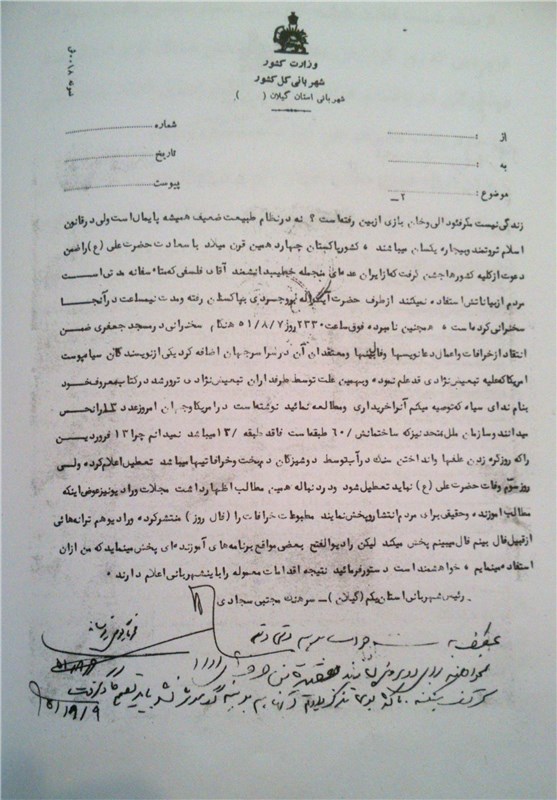 وزارت کشور
شهربانی کل کشور
شهربانی استان گیلان ( )
شماره
تاریخ
پیوست
از :
به :
موضوع : ۲ـ
زندگی نیست مگر فئودالی وخان بازی ازبین رفته است ؟ نه درنظام طبیعت ضعیف همیشه پایمال است ولی درقانون
اسلام ثروتمند وبیچاره یکسان میباشند ۰ کشورپاکستان چهاردهمین قرن میلاد باسعادت حضرت علی (ع) راضمن
دعوت ازکلیه کشورها جشن گرفت که ازایران عده‌ای منجمله خطیب دانشمند آقای فلسفی که متاسفانه مدتی است
مردم ازبیاناتش استفاده نمیکنند ازطرف حضرت آیت‌اله بروجردی بپاکستان رفته ومدت نیمساعت درآنجا
سخنرانی کرده است ۰ همچنین نامبرده فوق ساعت ۲۳۳۰ روز ۵۱/۸/۷ هنگام سخنرانی درمسجد جعفری ضمن
انتقاد ازخرافات واعمال دعانویسها وفالبینها ومعتقدان آن درسراسرجهان اضافه کرد یکی ازنویسندگان سیاهپوست
امریکا که علیه تبعیض نژادی قدعلم نموده وبهمین علت توسط طرفداران تبعیض نژادی ترورشد درکتاب معروف خود
بنام ندای سیاه که توصیه میکنم آنرا خریداری ومطالعه نمائید نوشته است درامریکا وجهان امروزعدد ۱۳ رانحس
میدانند وسازمان ملل متحد نیزکه ساختمانش /۶۰ طبقه است فاقد طبقه /۱۳ میباشد نمیدانم چرا ۱۳ فروردین
را که روزگره زدن علفها وانداختن سنگ درآب توسط دوشیزگان دم بخت وخرافاتیها میباشد تعطیل اعلام کرده ولی
روزسوم وفات حضرت علی (ع) نباید تعطیل شود ودردنباله همین مطالب اظهارداشت مجلات ورادیونیزعوض اینکه
مطالب آموزنده وحقیقی برای مردم انتشاروپخش نمایند مطبوعات خرافات را (فال روز ) منتشرکرده ورادیوهم ترانه‌هائی
ازقبیل فال بینم فال میبینم پخش میکند لیکن رادیوالفتح بعضی مواقع برنامه‌های آموزنده‌ای پخش مینماید که من ازآن
استفاده مینمایم ۰ خواهشمند است دستورفرمائید نتیجه اقدامات معموله را باین شهربانی اعلام دارند ۰
رئیس شهربانی استان یکم (گیلان ) ـ سرهنگ مجتبی سجادی